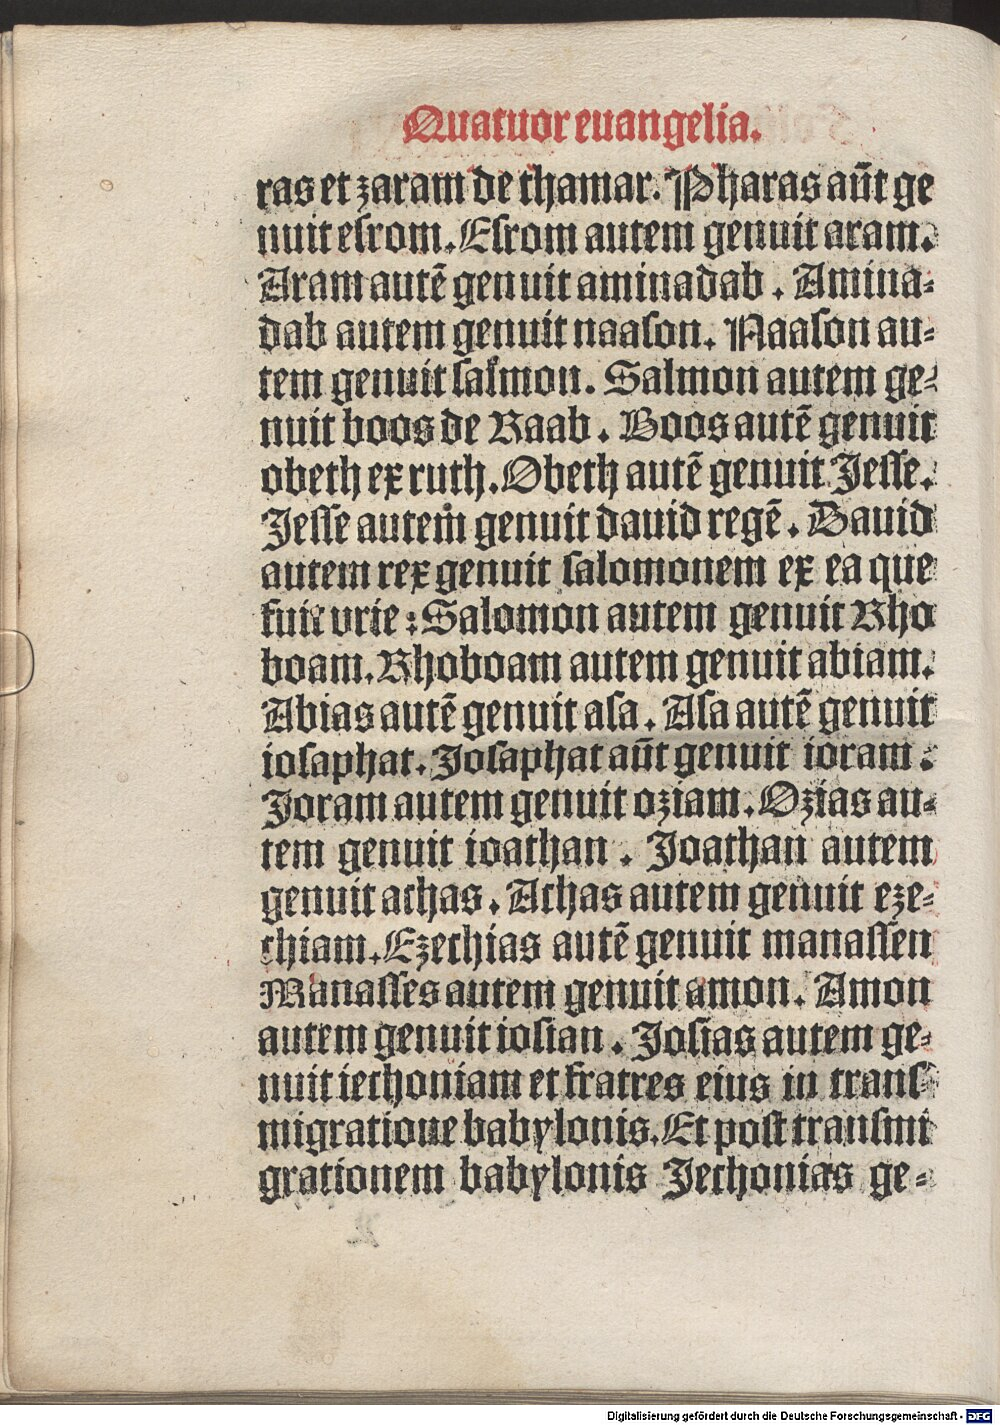 Quatuor euangelia.
ras et zaram de thamar. Pharas aūt ge
nuit esrom. Esrom autem genuit aram.
Aram autē genuit aminadab. Amina-
dab autem genuit naason. Naason au-
tem genuit salmon. Salmon autem ge-
nuit boos de Raab. Boos autē genuit
obeth ex ruth. Obeth autē genuit Jesse.
Jesse autem genuit dauid regē. Dauid
autem rex genuit salomonem ex ea que
fuit vrie: Salomon autem genuit Rho
boam. Rhoboam autem genuit abiam.
Abias autē genuit asa. Asa autē genuit
iosaphat. Josaphat aūt genuit ioram.
Joram autem genuit oziam. Ozias au-
tem genuit ioathan. Joathan autem
genuit achas. Achas autem genuit eze-
chiam. Ezechias autē genuit manassen
Manasses autem genuit amon. Amon
autem genuit iosian. Josias autem ge-
nuit iechoniam et fratres eius in trans-
migratioue babylonis. Et post transmi
grationem babylonis Jechonias ge-
Digitalisierung gefördert durch die Deutsche Forschungsgemeinschaft - DFG